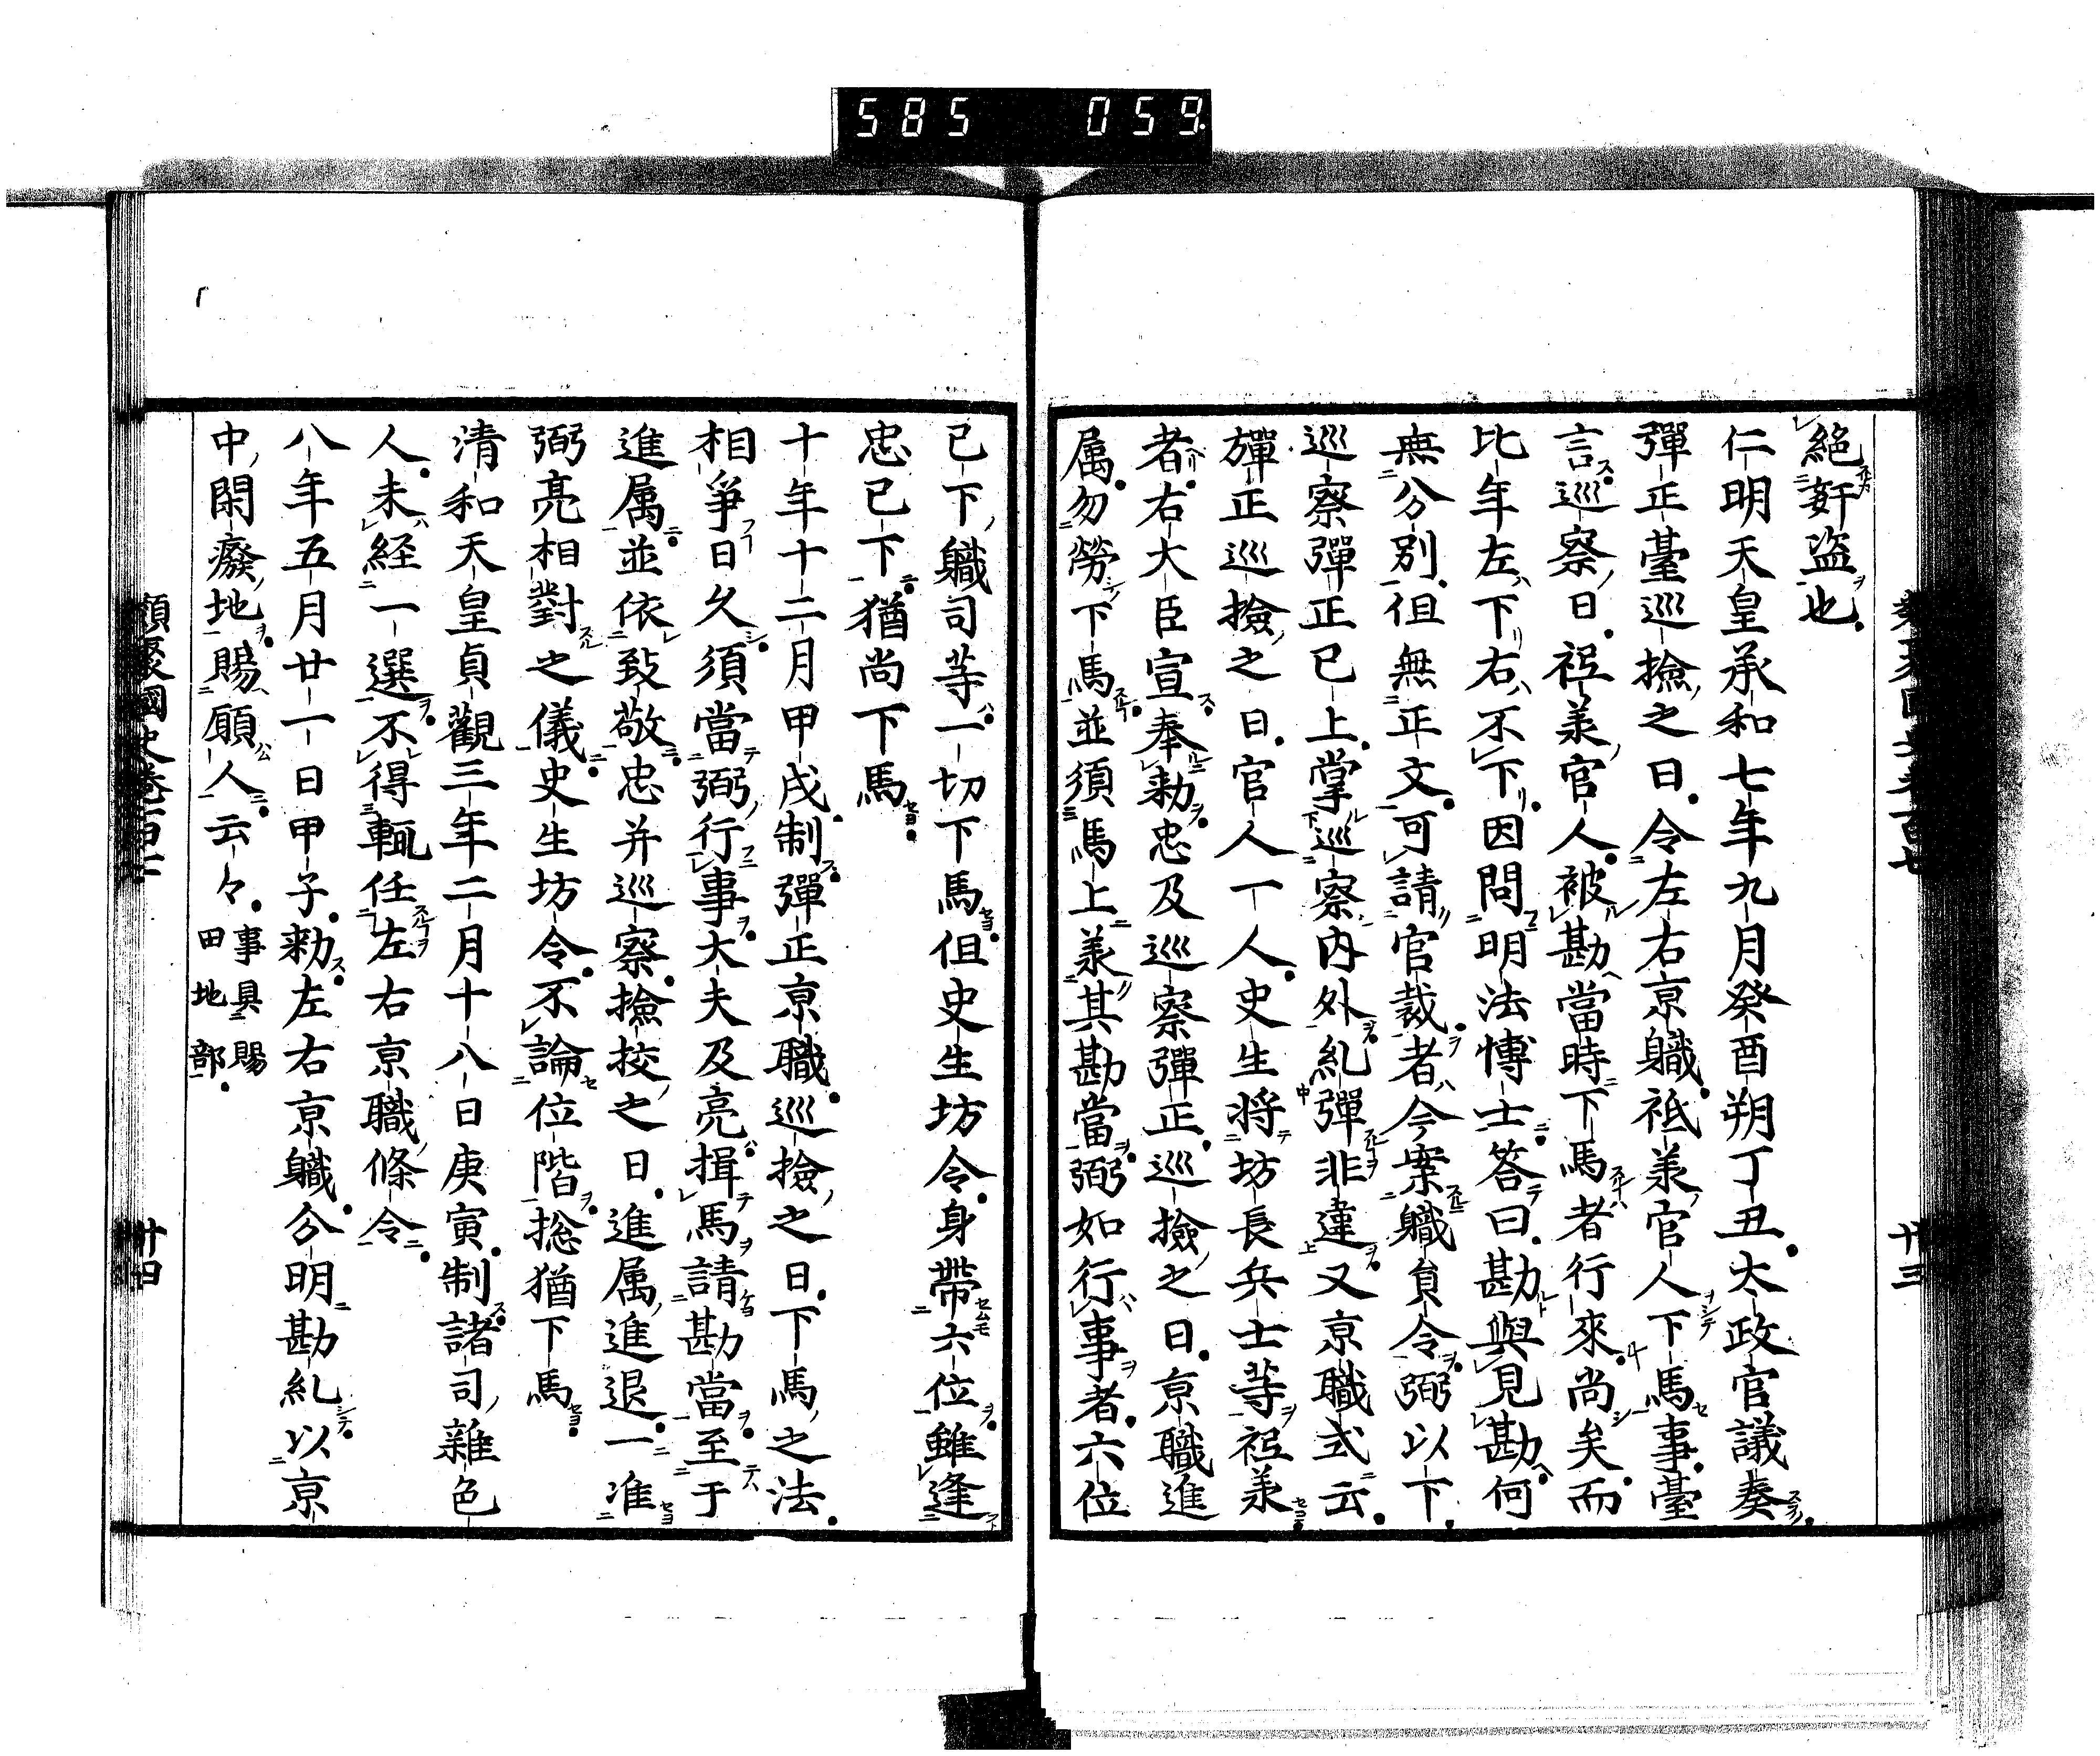 585 059
絶姧盗也
仁明天皇承和七年九月癸酉朔丁丑太政官議奏
彈正臺巡撿之日令左右京職祗羕官人下馬事臺
言巡察日祗羕官人被勘當時下馬者行來尚矣而
比年左下右不下因問明法博士答曰勘與見勘何
無分別但無正文可請官裁者今案職員令弼以下
巡察彈正已上掌巡察内外糺彈非違又京職式云
彈正巡撿之日官人一人史生將坊長兵士等祗羕
者右大臣宣奉勅忠及巡察彈正巡撿之日京職進
属勿勞下馬並須馬上羕其勘當弼如行事者六位
已下職司等一切下馬但史生坊令身帶六位雖逢
忠已下猶尚下馬
十年十二月甲戌制彈正京職巡撿之日下馬之法
相爭日久須當弼行事大夫及亮揖馬請勘當至于
進属並依致敬忠并巡察撿挍之日進属進退一准
弼亮相對之儀史生坊令不論位階捴猶下馬
清和天皇貞觀三年二月十八日庚寅制諸司雜色
人未経一選不得輙任左右京職條令
八年五月廿一日甲子勅左右京職分明勘糺以京
中閑癈地賜願人云々事具賜田地部
類聚國史巻百七 廿四